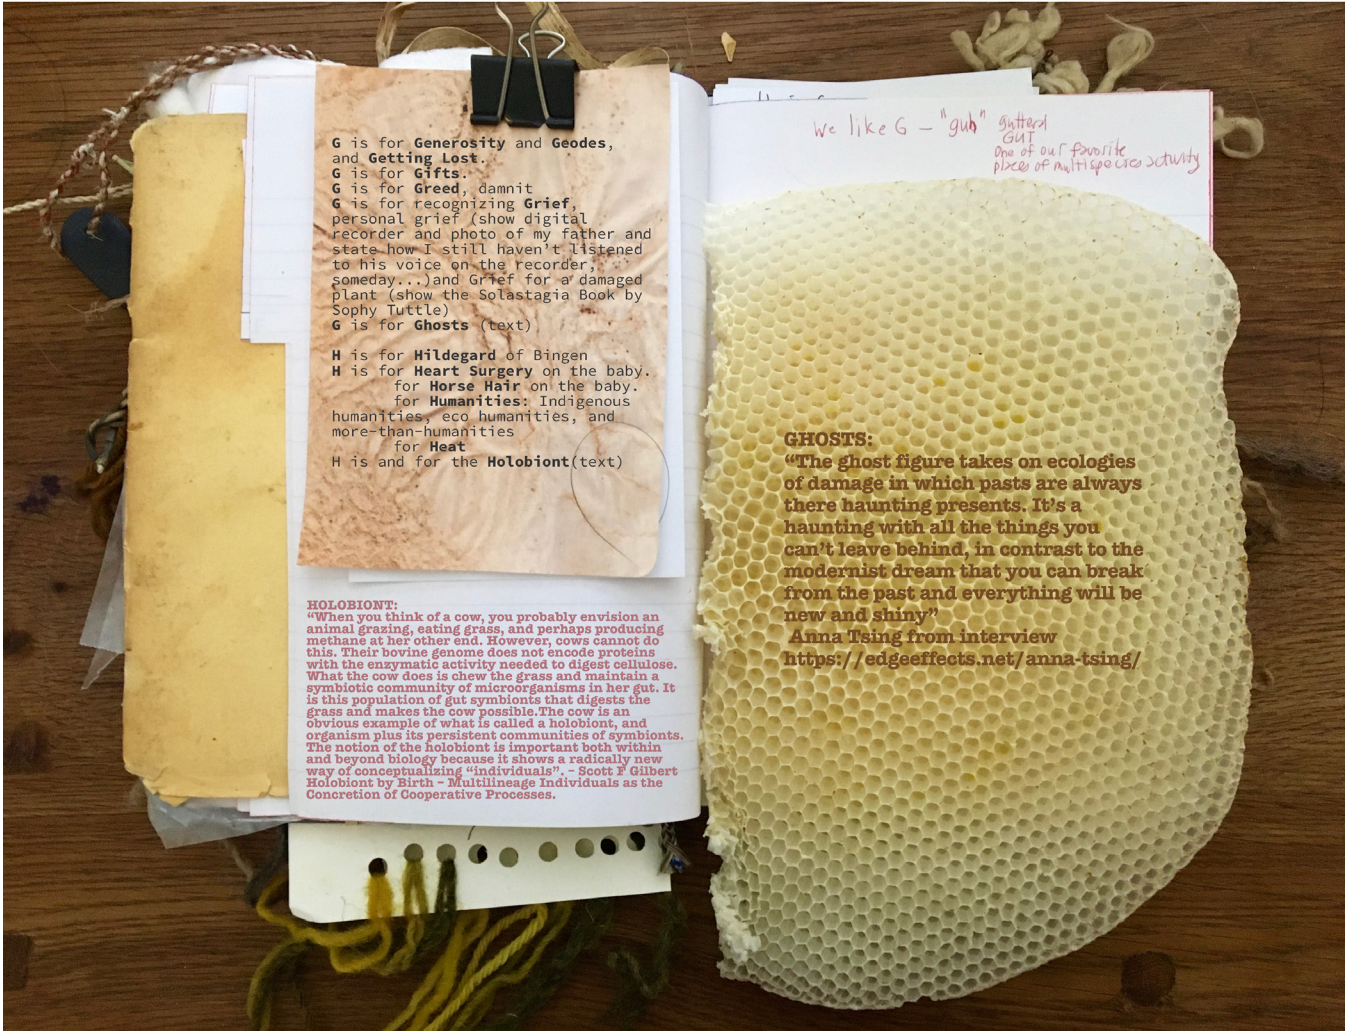 G is for Generosity and Geodes,
and Getting Lost.
G is for Gifts.
G is for Greed, damnit
G is for recognizing Grief,
personal grief (show digital
recorder and photo of my father and
state how I still haven't listened
to his voice on the recorder,
someday...)and Grief for a damaged
plant (show the Solastagia Book by
Sophy Tuttle)
G is for Ghosts (text)
H is for Hildegard of Bingen
H is for Heart Surgery on the baby.
for Horse Hair on the baby.
for Humanities: Indigenous
humanities, eco humanities, and
more-than-humanities
for Heat
H is and for the Holobiont(text)
HOLOBIONT:
“When you think of a cow, you probably envision an
animal grazing, eating grass, and perhaps producing
methane at her other end. However, cows cannot do
this. Their bovine genome does not encode proteins
with the enzymatic activity needed to digest cellulose.
What the cow does is chew the grass and maintain a
symbiotic community of microorganisms in her gut. It
is this population of gut symbionts that digests the
grass and makes the cow possible.The cow is an
obvious example of what is called a holobiont, and
organism plus its persistent communities of symbionts.
The notion of the holobiont is important both within
and beyond biology because it shows a radically new
way of conceptualizing “individuals”. – Scott F Gilbert
Holobiont by Birth – Multilineage Individuals as the
Concretion of Cooperative Processes.
We like G – "guh" guttered
GUT
One of our favorite
places of multispecies activity
GHOSTS:
“The ghost figure takes on ecologies
of damage in which pasts are always
there haunting presents. It’s a
haunting with all the things you
can’t leave behind, in contrast to the
modernist dream that you can break
from the past and everything will be
new and shiny”
Anna Tsing from interview
https://edgeeffects.net/anna-tsing/